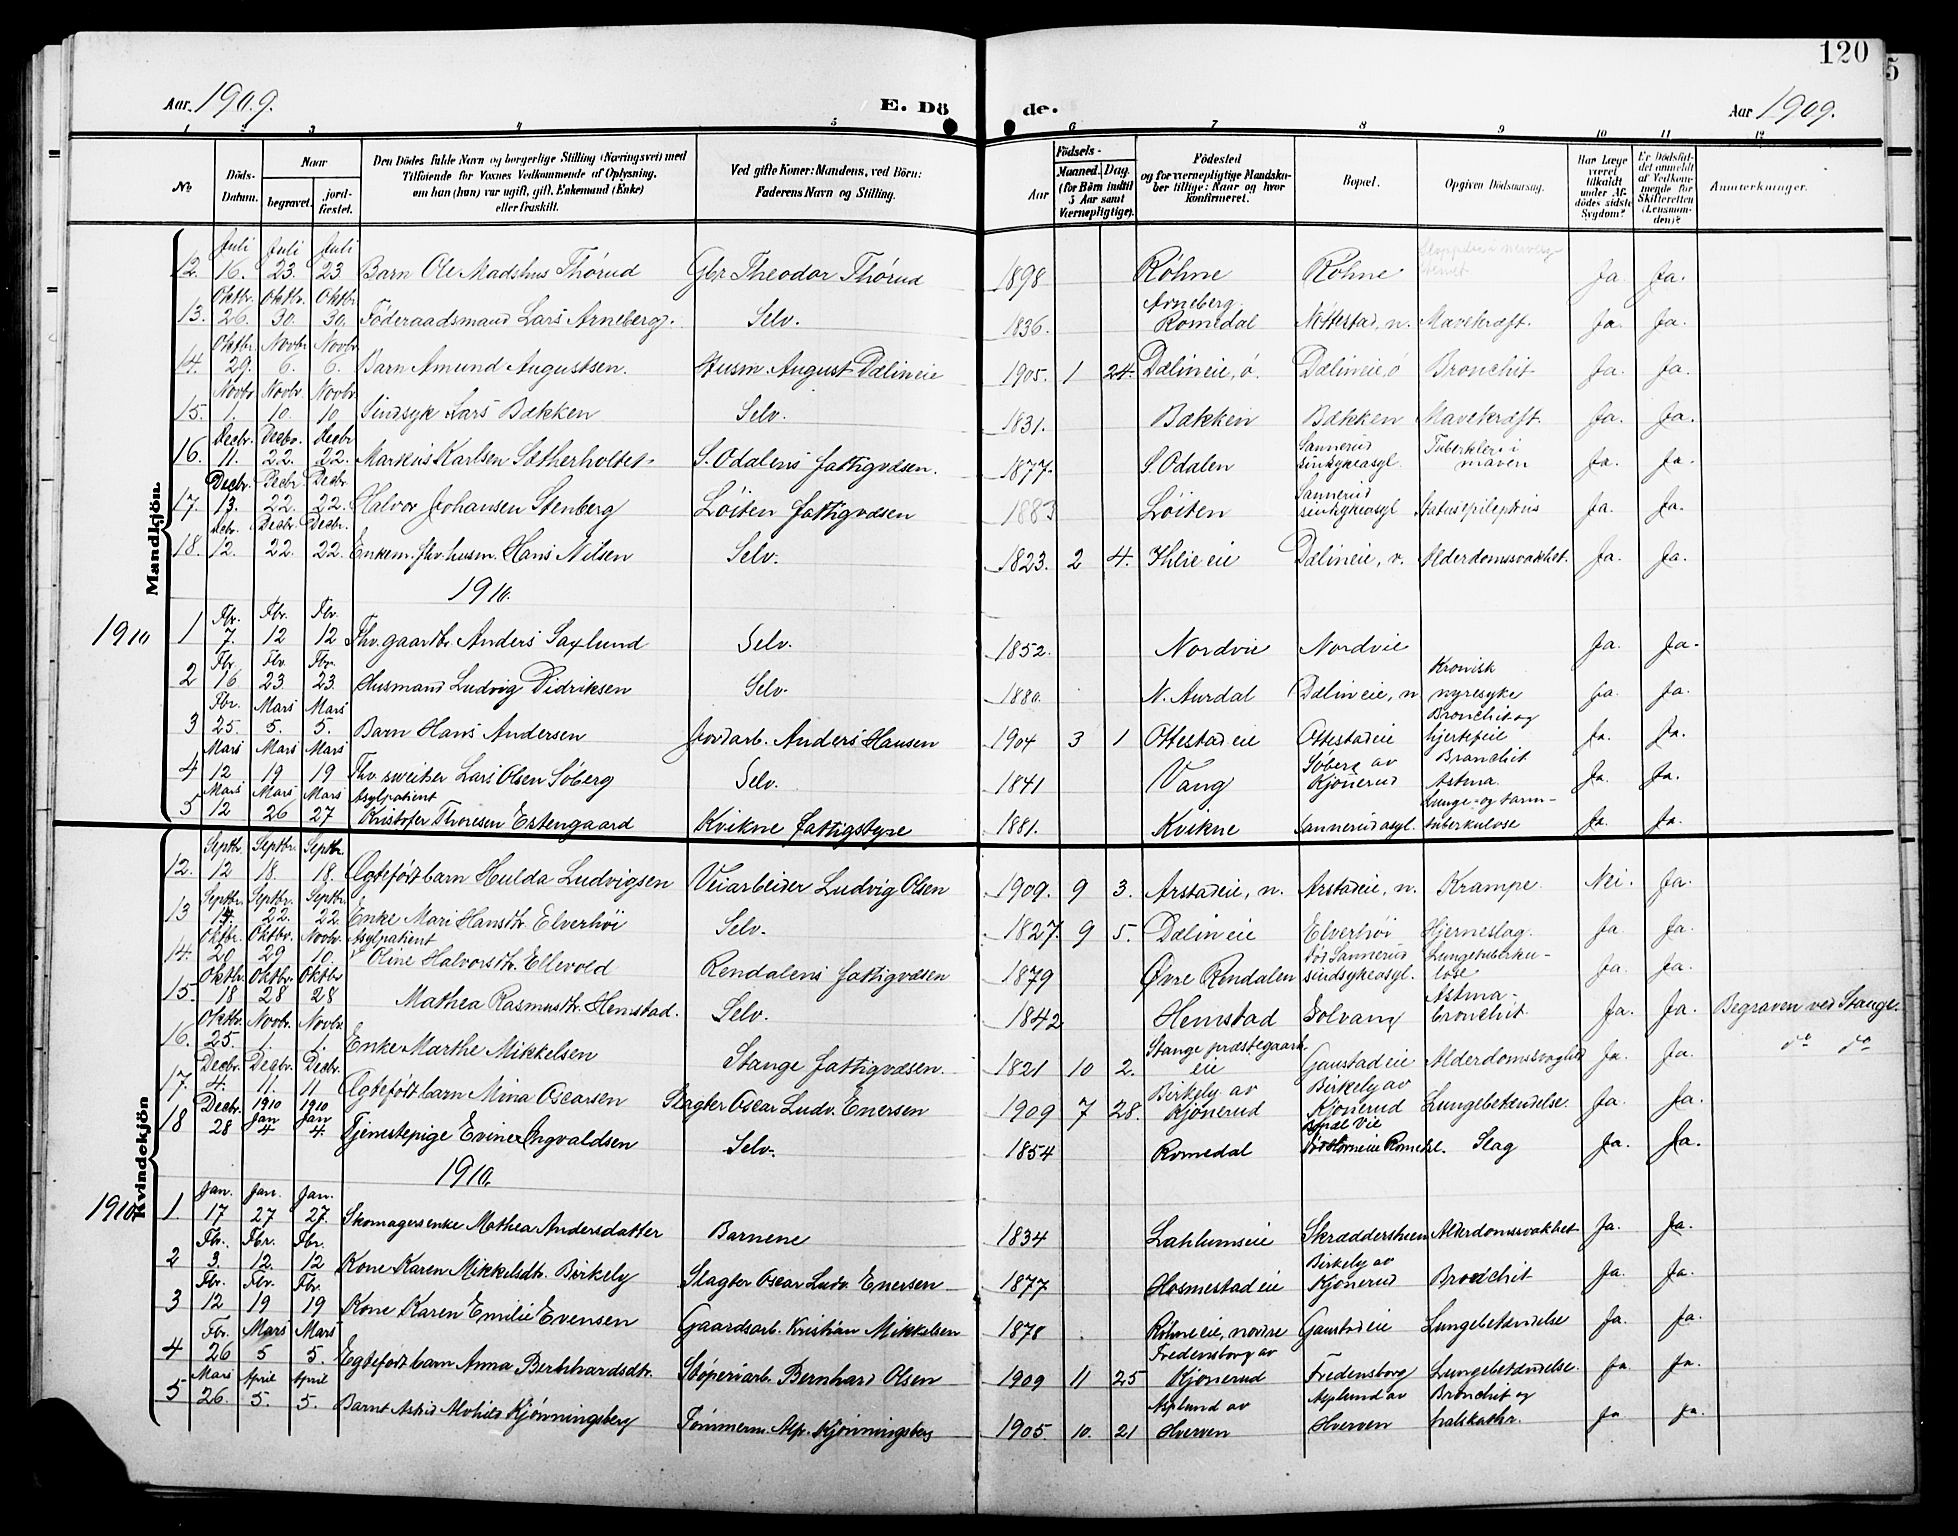 120
5
Aar 1909.
E. Dö
de.
Aar 1909.
1 2 3 4 5 6 7 8 9 10 11 12
No
Döds-Datum.
Naar
begravet.
jord-fæstet.
Den Dödes fulde Navn og borgerlige Stilling (Næringsvei) med
Tilföiende for Voxnes Vedkommende af Oplysning,
om han (hun) var ugift, gift, Enkemand (Enke)
eller fraskilt.
Ved gifte Koner: Mandens, ved Börn:
Faderens Navn og Stilling.
Födsels-
Aar
Maaned. Dag.
(for Börn indtil
5 Aar samt
Værnepligtige).
Födested
og for værnepligtige Mandska-
ber tillige: Naar og hvor
konfirmeret.
Bopæl.
Opgiven Dödsaarsag.
Har Læge
været
tilkaldt
under Af-
dödes sidste
Sygdom?
Er Dödsfal-
det anmeldt
af Vedkom-
mende for
Skifteretten
(Lensman-
den)?
Anmærkninger.
Mandkjön.
12. Juli 16. Juli 23. Juli 23 Barn Ole Madshus Thørud Gbr Theodor Thørud 1898 Røhne Røhne Ja. Ja.
13. Oktbr. 26. Oktbr. 30. Oktbr 30. Føderaadsmand Lars Arneberg. Selv. 1836. Arneberg. Romedal Nøttestad, n. Mavekræft. Ja. Ja.
14. Oktbr. 29. Novbr 6. Novbr. 6. Barn Amund Augustsen. Husm. August Dælineie 1905. 1 24. Dælineie, ø. Dælineie, ø Bronchit Ja. Ja.
15. Novbr 1. Novbr. 10. Novbr. 10 Sindsyk Lars Bækken Selv. 1831. Bækken Bækken Mavekræft. Ja. Ja.
16. Decbr. 11. Decbr. 22. Decbr 22. Markus Karlsen Sætherholtet S. Odalens fattigvæsen. 1877. S. Odalen Sannerud sindsykeasyl. Tuberkler i maven Ja. Ja.
17. Decbr. 13. Decbr 22. Decbr. 22. Halvor Johansen Stenberg Løiten fattigvæsen 1883 Løiten Sannerud sindsykeasyl Status epilepticus Ja. Ja.
18. Decbr. 12. Decbr. 22. Decbr. 22. Enkem. fhv. husm. Hans Nilsen Selv. 1823. 2 4. Ihlieeie Dælineie, v. Alderdomssvakhet. Ja. Ja.
1910.
1910
1 Fbr. 7. Fbr. 12 Fbr. 12 Fhv. gaardbr. Anders Saxlund Selv. 1852. Nordvie Nordvie Ja. Ja.
2 Fbr. 16 Fbr. 23. Fbr. 23. Husmand Ludvig Didriksen Selv. 1880. N. Aurdal Dælineie, n Kronisk nyresyke Ja. Ja.
3 Fbr. 25. Mars 5. Mars 5. Barn Hans Andersen Jordarb. Anders Hansen 1904 3 1 Ottestadeie Ottestadeie Bronchit og hjertefeil Ja. Ja.
4 Mars 12 Mars 19 Mars 19 Fhv. sveiker Lars Olsen Søberg Selv. 1841 Vang Søberg av Kjønerud Bronchit Astma. Ja. Ja.
5 Mars 12 Mars 26 Mars 27 Asylpatient Kristofer Thoresen Estengaard Kvikne fattigstyre 1881. Kvikne Sannerud asyl. Lunge- og tarm-tuberkulose Ja. Ja.
Kvindekjön
12. Septbr. 12 Septbr. 18. Septbr. 18. Ægtefødt barn Hulda Ludvigsen Veiarbeider Ludvig Olsen 1909. 9 3. Arstadeie, n. Arstadeie, n. Krampe. Nei. Ja.
13 Septbr. 14. Septbr. 22. Septbr. 22 Enke Mari Hansdtr. Elverhøi Selv. 1827. 9 5. Dælineie Elverhøi Hjerneslag. Ja Ja.
14. Oktbr. 20 Oktbr. 29 Novbr. 10. Asylpatient Oline Halvorsdtr. Ellevold Rendalens fattigvæsen 1879 Øvre Rendalen Sannerud sindsykeasyl. Lungetuberkulose Ja. Ja.
15. Oktbr. 18 Oktbr. 28 Oktbr 28 Mathea Rasmusdtr. Hemstad. Selv. 1842 Hemstad Solvang Astma-bronchit. Ja. Ja. Begraven ved Stange.
16. Oktbr 25. Novbr. 1. Novbr. 1. Enke Marthe Mikkelsen Stange fattigvæsen. 1821 10 2. Stange præstegaards eie Gaustadeie Alderdomssvaghed Ja. Ja. do do
17. Decbr. 4. Decbr. 11. Decbr. 11. Ægtefødt barn Mina Oscarsen Slagter Oscar Ludv. Enersen 1909 7 28. Birkely av Kjønerud Birkely av Kjønerud Lungebetændelse. Ja. Ja.
18 Decbr. 28 1910 Jan 4 1910 Jan 4. Tjenestepige Evine Ingvaldsen Selv. 1854 Romedal Slag Ja. Ja.
1910.
1910
1. Jan. 17 Jan. 27 Jan. 27. Skomagersenke Mathea Andersdatter Barnene 1834 Lahlumseie Skræddersheim Alderdomssvakhet Ja. Ja.
2 Fbr. 3. Fbr. 12. Fbr. 12 Kone Karen Mikkelsdtr. Birkely Slagter Oscar Ludv. Enersen 1877 Hosmestadeie Birkely av Kjønerud Bronchit Ja. Ja.
3 Fbr. 12 Fbr. 19 Fbr. 19 Kone Karen Emilie Evensen Gaardsarb. Kristian Mikkelsen 1878 Røhneeie, nordre Gaustadeie Lungebetændelse Ja. Ja.
4 Fbr. 26 Mars 5 Mars 5. Egtefødt barn Anna Bernhardsdtr. Støperiarb. Bernhard Olsen 1909 11 25 Fredensborg av Kjønerud Fredensborg Lungebetændelse. Ja. Ja.
5 Mars 26. April 5. April 5. Barnt Astrid Alvhild Kjønningsberg Tømmerm. Alf. Kjønningsberg 1905. 10. 21 Asplund av Hverven Asplund av Hverven Bronchit og halskathr. Ja Ja.